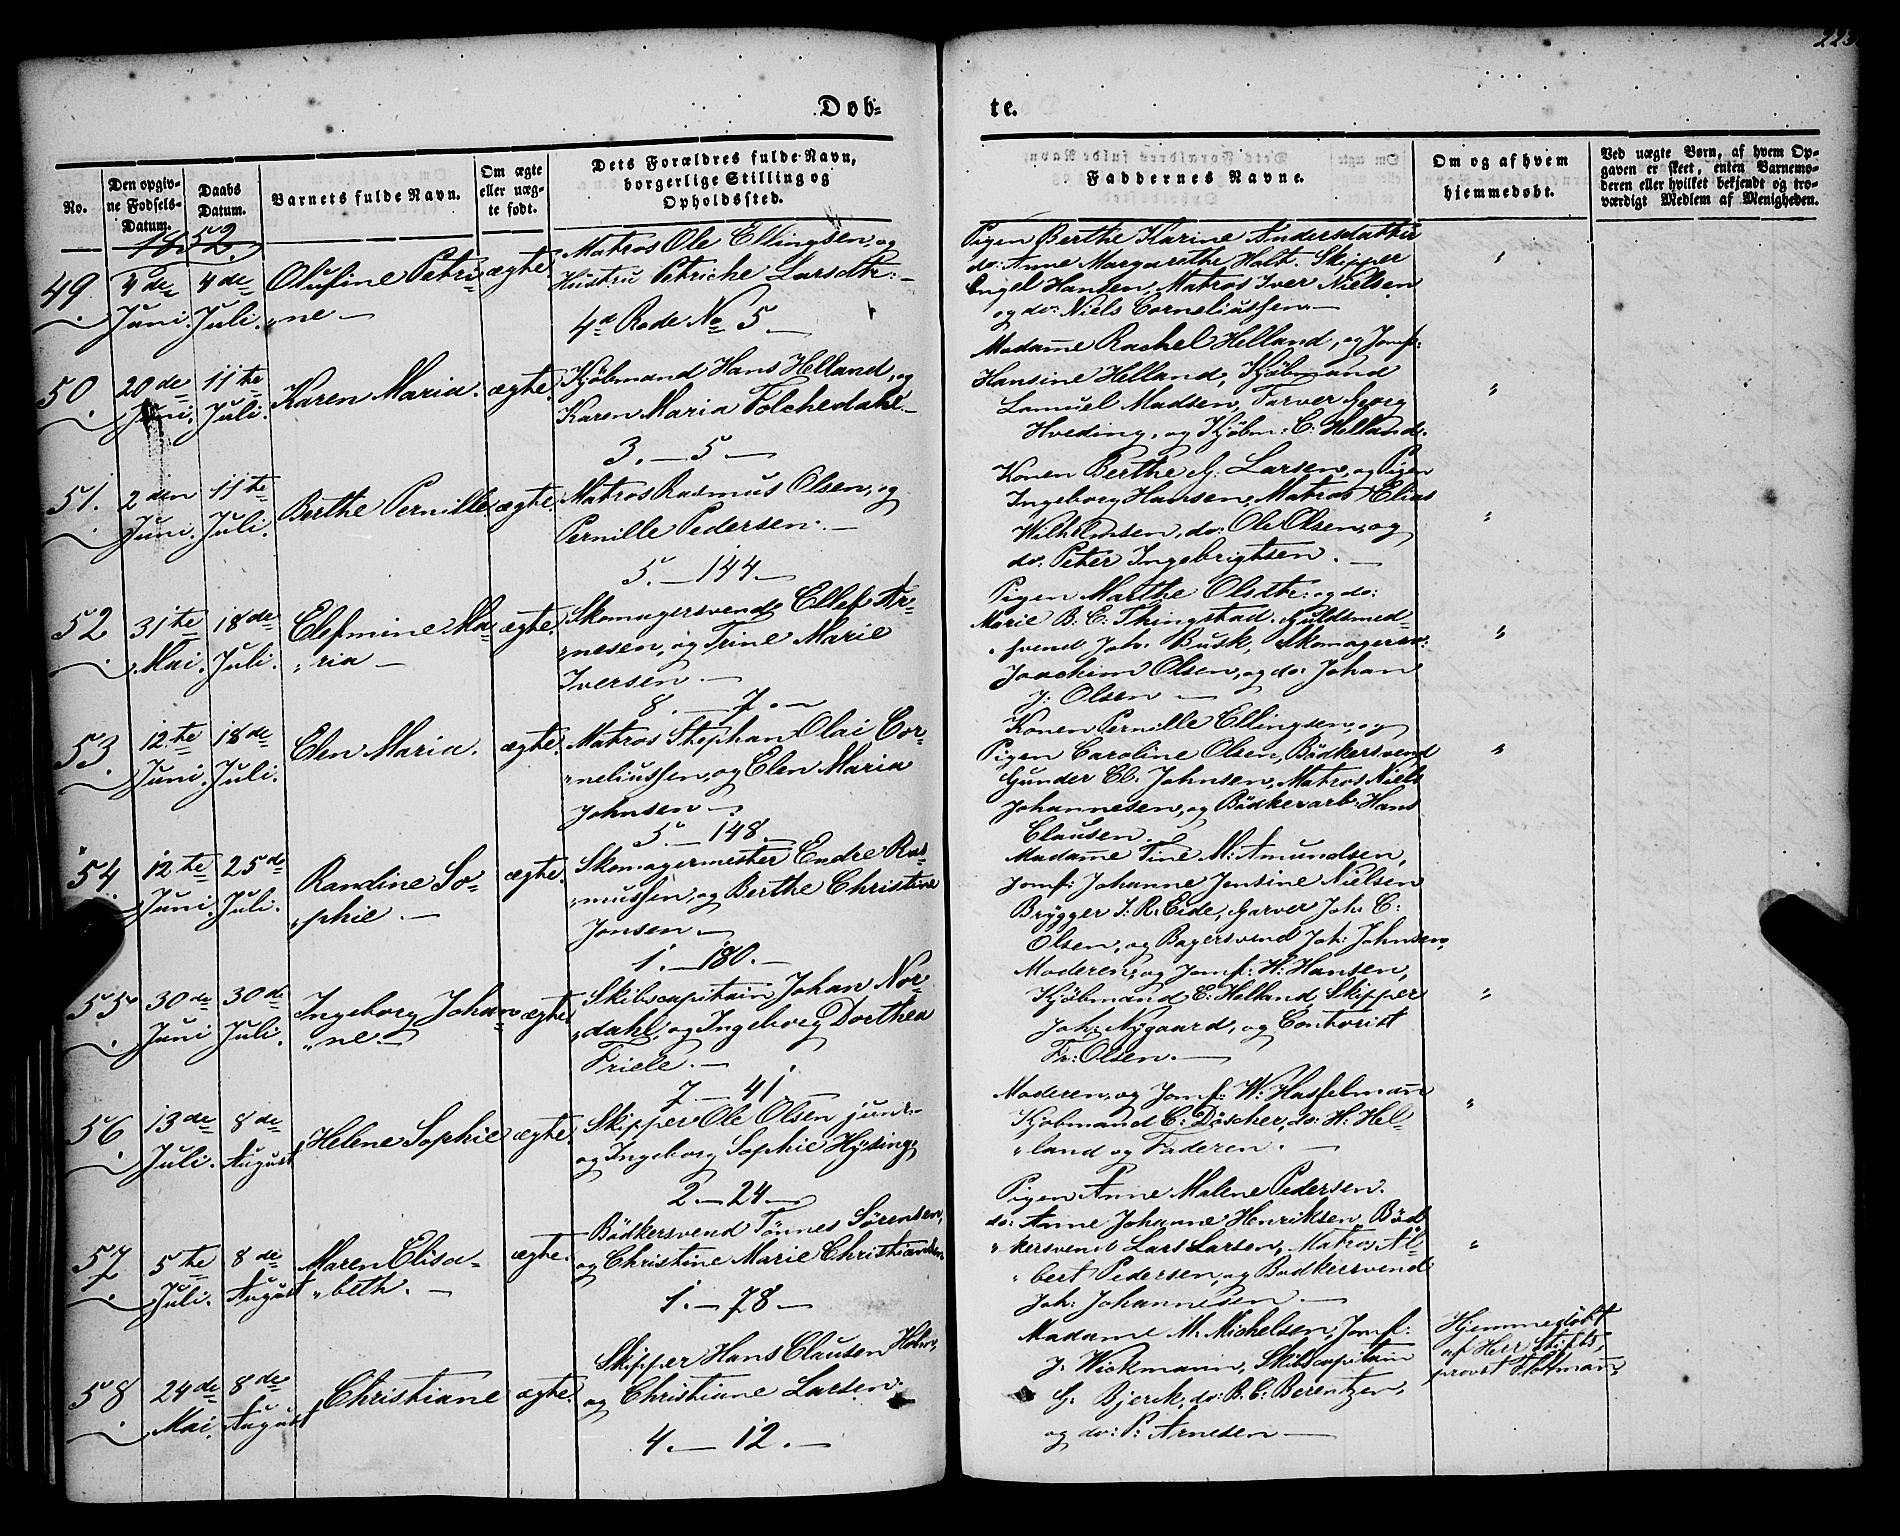 Døb-
te.
No.
Den opgiv-
ne Fødsels-
Datum.
Daabs
Datum.
Barnets fulde Navn.
Om ægte
eller uæg-
te født.
Dets Forældres fulde Navn,
borgerlige Stilling og
Opholdssted.
Faddernes Navne.
Om og af hvem
hjemmedøbt.
Ved uægte Børn, af hvem Op-
gaven er skeet, enten Barnemo-
deren eller hvilket bekjendt og tro-
værdigt Medlem af Menigheden.
1852.
49. 4de Juni. 4de Juli.
Olufine Petri-
"ne —
ægte.
Matros Ole Ellingsen, og
Hustru Petriche Larsdtr: —
4d Rode No 5 —
Pigen Berthe Karine Andersdatter
do: Anne Margarethe Holt. Skipper
Engel Hansen, Matros Iver Nielsen
og do: Niels Corneliussen. —
"
50. 20de Juni. 11te Juli.
Karen Maria.
ægte.
Kjøbmand Hans Helland, og
Karen Maria Tolchedahl. —
3. — 5 —
Madame Rachel Helland, og Jomf:
Hansine Helland, Kjøbmand
Samuel Madsen, Farver Georg
Hveding, og Kjøbm: C. Helland.
"
51. 2den Juni. 11te Juli.
Berthe Pernille.
ægte.
Matros Rasmus Olsen, og
Pernille Pedersen. —
5. — 144 —
Konen Berthe G. Larsen, og Pigen
Ingeborg Hansen, Matros Elias
Wilhelmsen, do: Ole Olsen, og
do: Peter Ingebrigtsen. —
"
52. 31te Mai. 18de Juli.
Elefmine Ma-
"ria —
ægte.
Skomagersvend Ellef Ar-
"nesen, og Trine Marie
Iversen. —
8. — 7. —
Pigen Marthe Olsdtr: og do:
Marie B. C. Thingstad. Guldsmed-
"svend Joh. Busk, Skomagersv:
Joachim Olsen, og do: Johan
J: Olsen —
"
53. 12te Juni. 18de Juli.
Elen Maria.
ægte.
Matros Stephan Olai Cor-
"neliussen, og Elen Maria
Johnsen —
5. — 148.
Konen Pernille Ellingsen, og
Pigen Caroline Olsen, Bødkersvend
Gunder Cl. Johnsen, Matros Niels
Johannesen, og Bødkerarb: Hans
Clausen. —
"
54. 12te Juni. 25de Juli.
Randine So-
"phie. —
ægte.
Skomagermester Endre Ras-
"mussen, og Berthe Christine
Jonsen —
1. — 180. —
Madame Tine M: Amundsen,
Jomf: Johanne Jensine Nielsen
Brygger J. R. Eide, Garver Joh: C:
Olsen, og Bagersvend Joh: Johnsen,
55. 30de Juni 30de Juli.
Ingeborg Johan-
"ne. —
ægte.
Skibscapitain Johan Nor-
"dahl, og Ingeborg Dorthea
Friele. —
7. — 41. —
Moderen, og Jomf: H: Hansen,
Kjøbmand E: Helland, Skipper
Joh: Nygaard, og Contorist
Fr: Olsen. —
"
56. 13de Juli. 8de August
Helene Sophie
ægte.
Skipper Ole Olsen junr.
og Ingeborg Sophie Hysing,
2. — 24 —
Moderen, og Jomf: W: Hasselmann
Kjøbmand C: Døscher, do: H: Hel-
"land og Faderen. —
"
57. 5te Juli. 8de August
Maren Elisa-
"beth. —
ægte.
Bødkersvend Tønnes Sørensen,
og Christine Marie Christiansen.
1. — 78 —
Pigen Anne Malene Pedersen.
do: Anne Johanne Henriksen, Bød-
"kersvend Lars Larsen, Matros Al-
"bert Pedersen, og Bødkersvend
Joh: Johannesen —
"
58. 24de Mai. 8de August
Christiane
ægte.
Skipper Hans Clausen
og Christiane Larsen.
4. — 12. —
Madame M. Michelsen, Jomf:
J. Wickmann, Skibscapitain
G. Bjerck, do: B. C: Berentzen,
og do: P: Arnesen —
Hjemmedøbt
af Herr Stifts-
provst